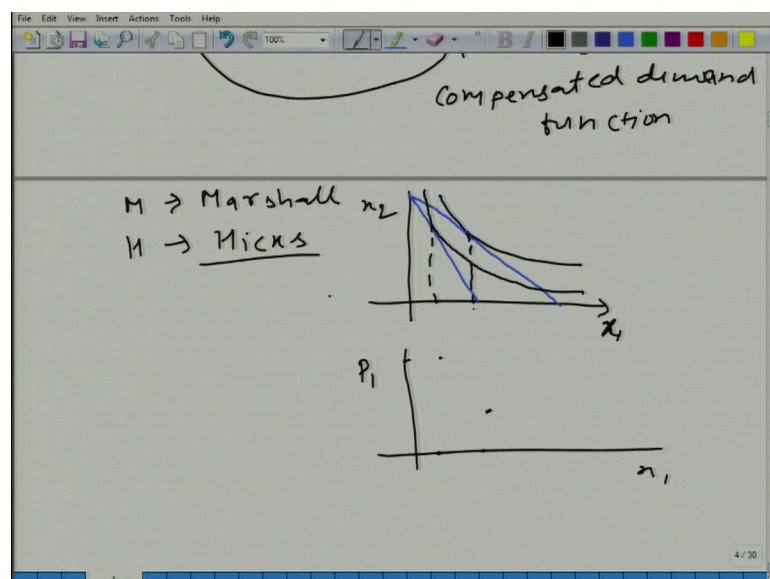 File Edit View Insert Actions Tools Help
100%
B I
Compensated demand
function
M → Marshall
H → Hicks
x2
x1
P1
x1
4 / 30